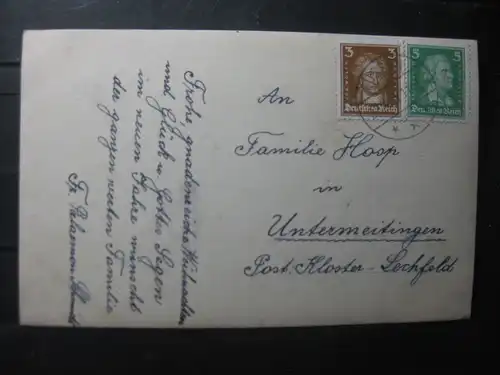 Frohe, gnadenreiche Weihnachten
und Glück u. Gottes Segen
im neuen Jahre wünscht
der ganzen werten Familie
Fr. Palaemon
3 3
Deutsches Reich
5 5
Deutsches Reich
An
Familie Hosp
in
Untermeitingen
Post: Kloster-Lechfeld